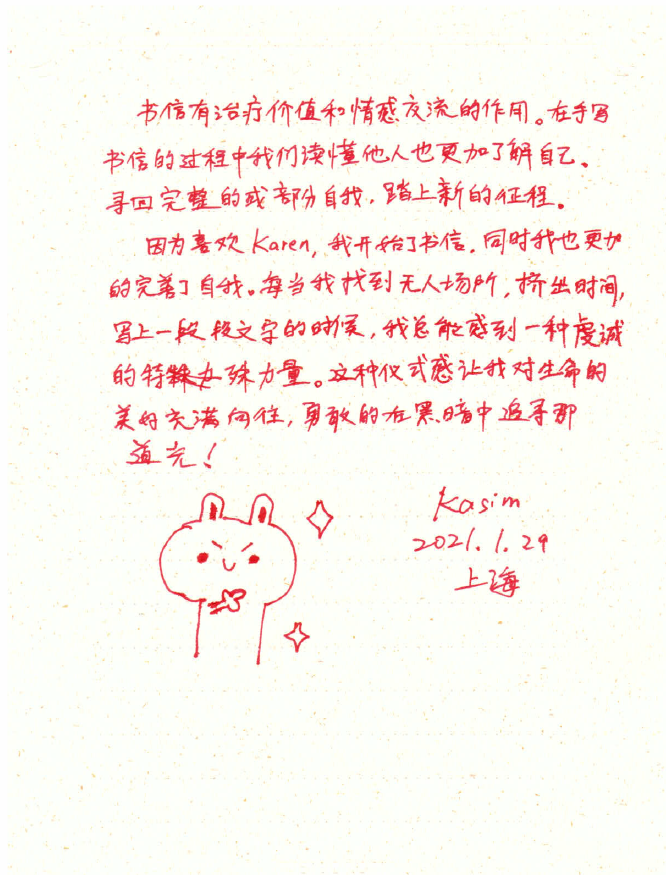 书信有治疗价值和情感交流的作用。在手写
书信的过程中我们读懂他人也更加了解自己、
寻回完整的或部分自我，踏上新的征程。
因为喜欢Karen，我开始了书信．同时我也更加
的完善了自我。每当我找到无人场所，挤出时间，
写上一段段文字的时候，我总能感到一种虔诚
的特殊力量。这种仪式感让我对生命的
美好充满向往，勇敢的在黑暗中追寻那
道光！
Kasim
2021.1.29
上海